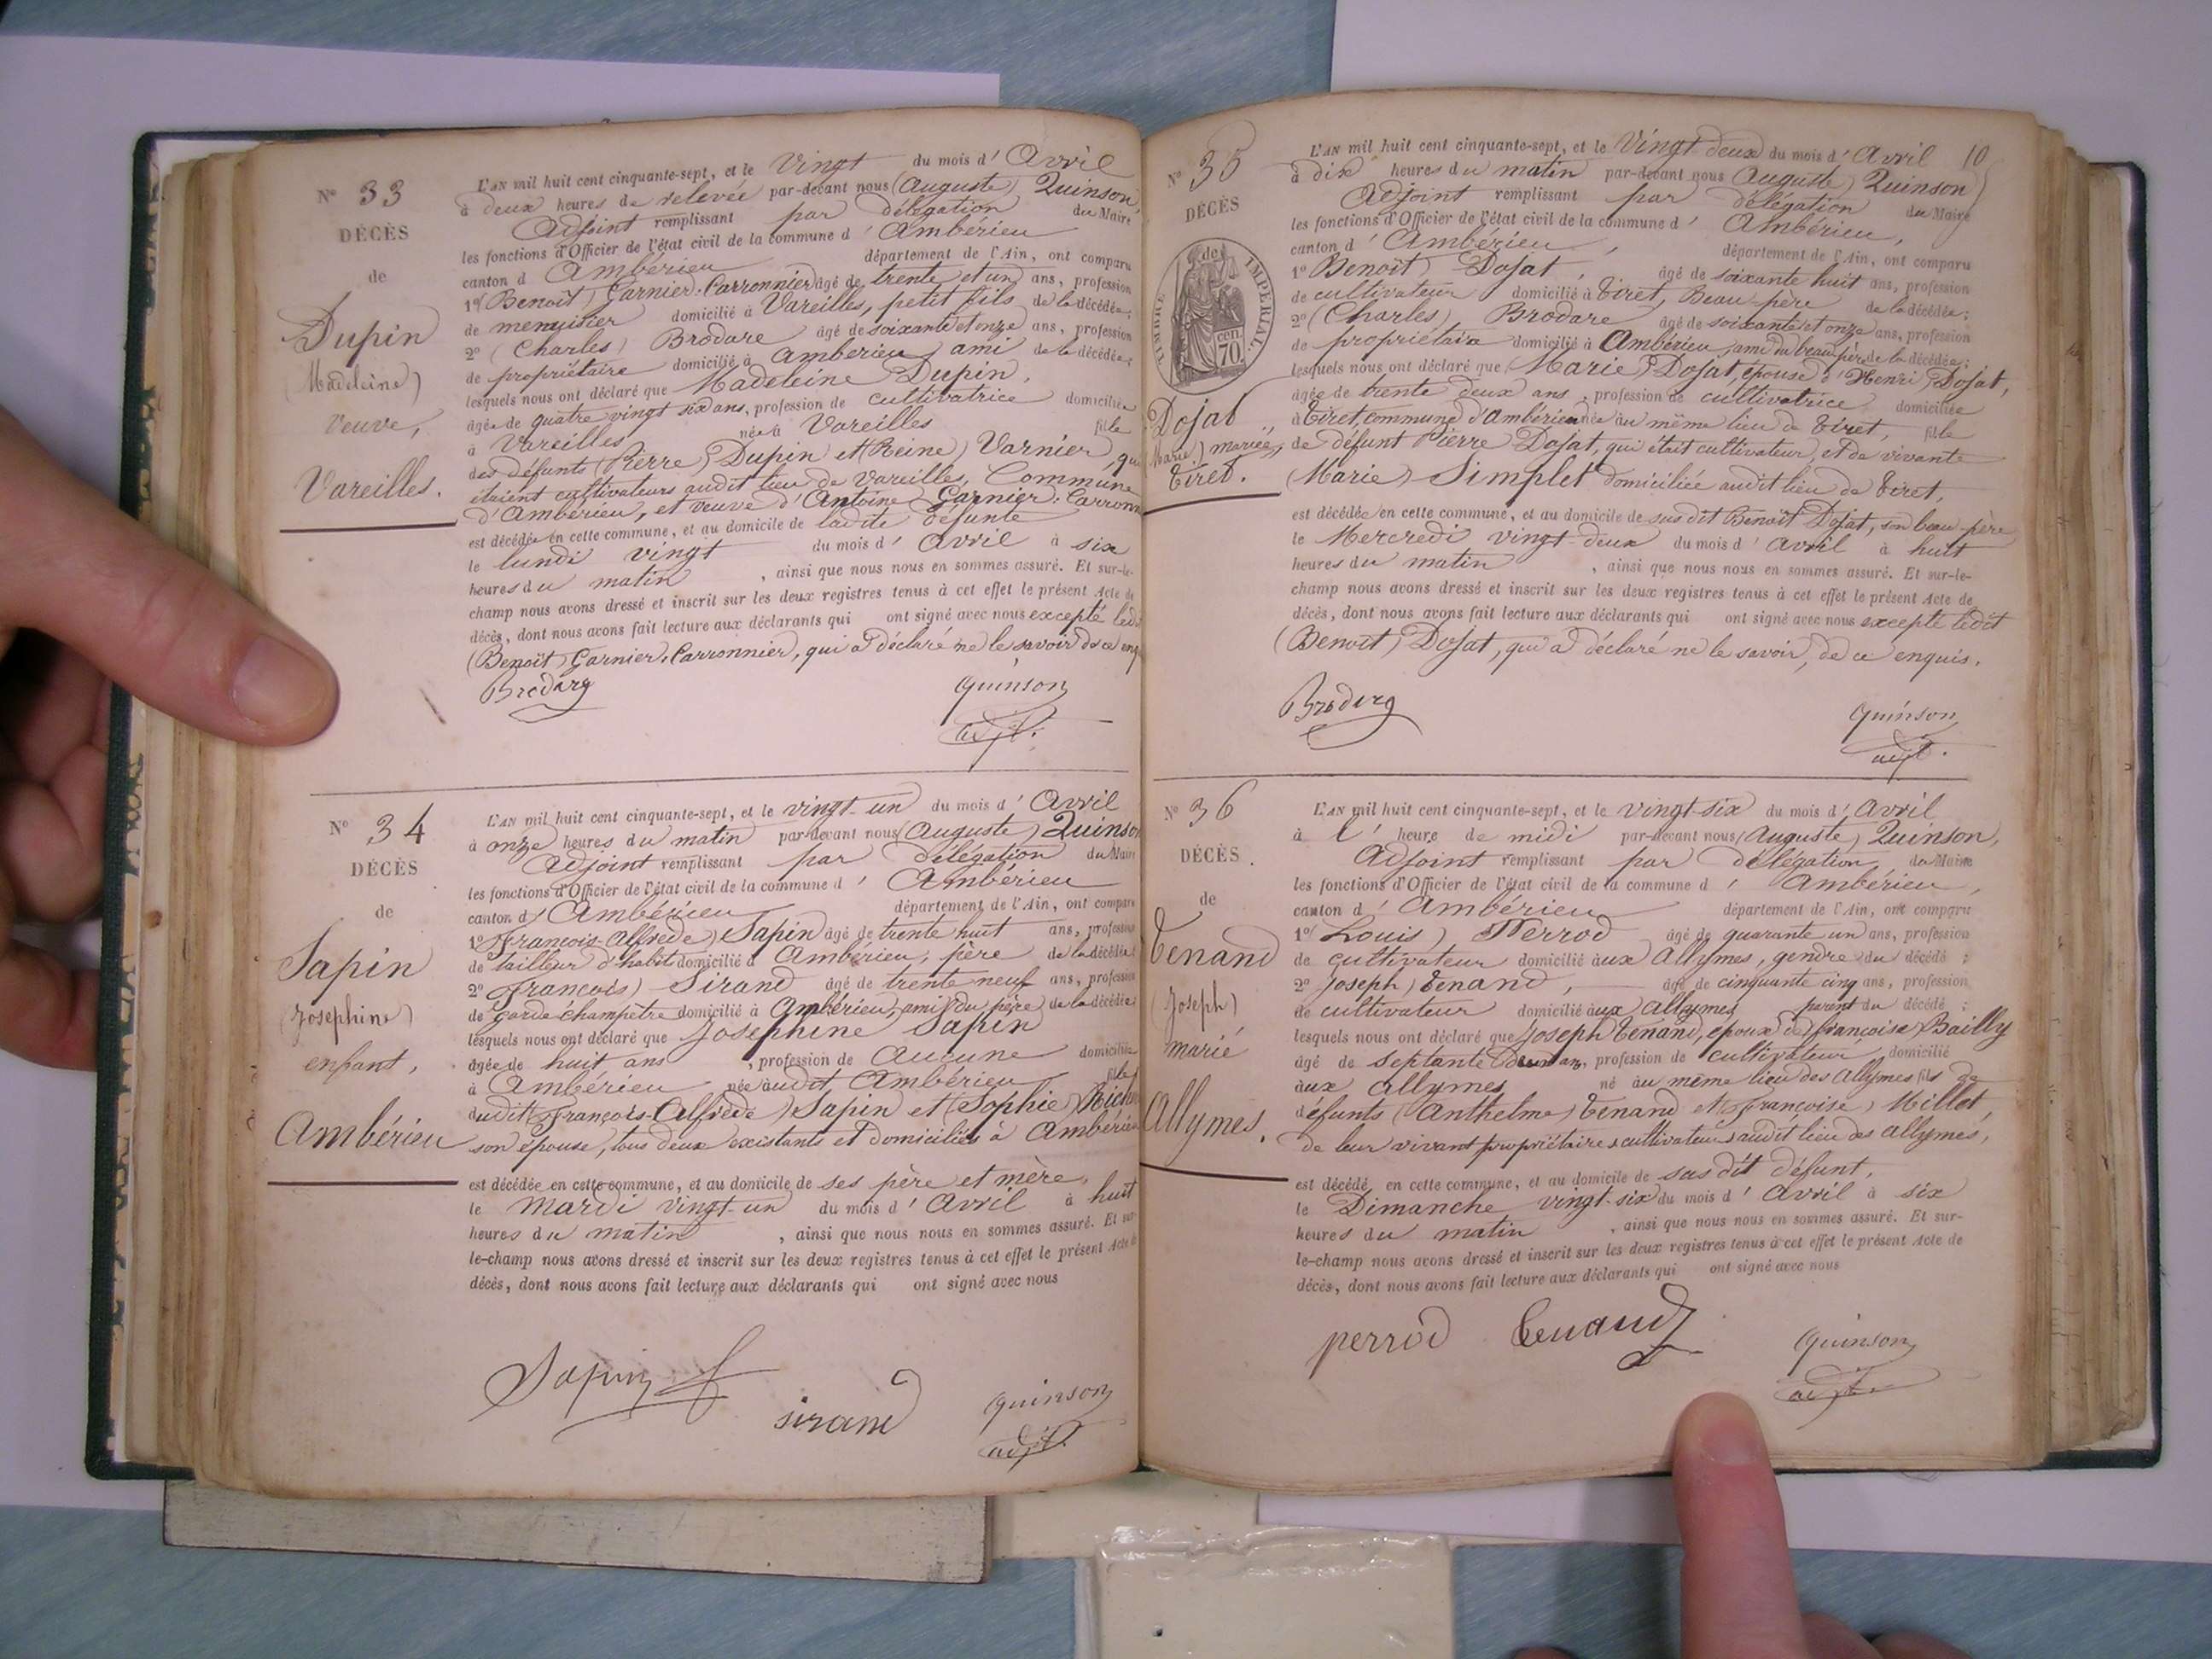 N° 33
DÉCÈS
de
Dupin
(Madeleine)
Veuve,
Vareilles.
L'AN mil huit cent cinquante-sept, et le Vingt du mois d' Avril
à deux heures de relevée par-devant nous (Auguste) Quinson,
Adjoint remplissant par délégation du Maire
les fonctions d'Officier de l'état civil de la commune d' Ambérieu
canton d' Ambérieu département de l'Ain, ont comparu
1° (Benoît) Garnier-Carronnier âgé de trente et un ans, profession
de menuisier domicilié à Vareilles, petit fils de la décédée;
2° (Charles) Brodare âgé de soixante et onze ans, profession
de propriétaire domicilié à Ambérieu, ami de la décédée;
lesquels nous ont déclaré que Madeleine Dupin,
âgée de quatre vingt six ans, profession de cultivatrice domiciliée
à Vareilles née à Vareilles fille
des défunts (Pierre) Dupin et (Reine) Varnier, qui
étaient cultivateurs audit lieu de Vareilles, Commune
d'Ambérieu, et veuve d'Antoine Garnier-Carronn
est décédée en cette commune, et au domicile de ladite défunte
le lundi vingt du mois d' Avril à six
heures du matin, ainsi que nous nous en sommes assuré. Et sur-le-
champ nous avons dressé et inscrit sur les deux registres tenus à cet effet le présent Acte de
décès, dont nous avons fait lecture aux déclarants qui ont signé avec nous excepté led
(Benoît) Garnier-Carronnier, qui a déclaré ne le savoir de ce enq
Brodare
Quinson
adjt.
N° 34
DÉCÈS
de
Sapin
(Josephine)
enfant,
Ambérieu
L'AN mil huit cent cinquante-sept, et le vingt-un du mois d' Avril
à onze heures du matin par-devant nous (Auguste) Quinson
Adjoint remplissant par délégation du Maire
les fonctions d'Officier de l'état civil de la commune d' Ambérieu
canton d' Ambérieu département de l'Ain, ont comparu
1° (François-Alfrède) Sapin âgé de trente huit ans, profession
de tailleur d'habits domicilié à Ambérieu, père de la décédée
2° (François) Sirand âgé de trente neuf ans, profession
de garde-champêtre domicilié à Ambérieu, ami du père de la décédée
lesquels nous ont déclaré que Josephine Sapin
âgée de huit ans, profession de Aucune domiciliée
à Ambérieu née audit Ambérieu fille
dudit (François-Alfrède) Sapin et (Sophie)
son épouse, tous deux existants et domiciliés à Ambérieu
est décédée en cette commune, et au domicile de ses père et mère,
le Mardi vingt-un du mois d' Avril à huit
heures du matin, ainsi que nous nous en sommes assuré. Et sur-
le-champ nous avons dressé et inscrit sur les deux registres tenus à cet effet le présent Acte de
décès, dont nous avons fait lecture aux déclarants qui ont signé avec nous
Sapin
sirand
Quinson
adjt.
10
N° 35
DÉCÈS
de
TIMBRE IMPÉRIAL
70 cen
Dojat
(Marie) mariée,
Tiret.
L'AN mil huit cent cinquante-sept, et le Vingt-deux du mois d' Avril
à dix heures du matin par-devant nous (Auguste) Quinson,
Adjoint remplissant par délégation du Maire
les fonctions d'Officier de l'état civil de la commune d' Ambérieu,
canton d' Ambérieu, département de l'Ain, ont comparu
1° (Benoît) Dojat, âgé de soixante huit ans, profession
de cultivateur domicilié à Tiret, Beau-père de la décédée;
2° (Charles) Brodare âgé de soixante et onze ans, profession
de propriétaire domicilié à Ambérieu, ami du beau père de la décédée;
lesquels nous ont déclaré que (Marie) Dojat, épouse d'Henri Dojat,
âgée de trente deux ans, profession de cultivatrice domiciliée
à Tiret, commune d'Ambérieu née au même lieu de Tiret, fille
de défunt Pierre Dojat, qui était cultivateur, et de vivante
(Marie) Simplet domiciliée audit lieu de Tiret,
est décédée en cette commune, et au domicile de susdit Benoît Dojat, son beau-père
le Mercredi vingt-deux du mois d' Avril à huit
heures du matin, ainsi que nous nous en sommes assuré. Et sur-le-
champ nous avons dressé et inscrit sur les deux registres tenus à cet effet le présent Acte de
décès, dont nous avons fait lecture aux déclarants qui ont signé avec nous excepté ledit
(Benoît) Dojat, qui a déclaré ne le savoir, de ce enquis.
Brodare
Quinson
adjt.
N° 36
DÉCÈS.
de
Tenand
(Joseph)
marié
Allymes.
L'AN mil huit cent cinquante-sept, et le vingt-six du mois d' Avril
à l' heure de midi par-devant nous (Auguste) Quinson,
Adjoint remplissant par délégation du Maire
les fonctions d'Officier de l'état civil de la commune d' Ambérieu,
canton d' Ambérieu département de l'Ain, ont comparu
1° (Louis) Perrod âgé de quarante un ans, profession
de cultivateur domicilié aux Allymes, gendre du décédé;
2° (Joseph) Tenand, âgé de cinquante cinq ans, profession
de cultivateur domicilié aux Allymes parent du décédé;
lesquels nous ont déclaré que Joseph Tenand, époux de (Françoise) Bailly
âgé de septante deux ans, profession de cultivateur domicilié
aux Allymes né au même lieu des Allymes fils de
défunts (Anthelme) Tenand et (Françoise) Millet,
de leur vivant propriétaires cultivateurs audit lieu des Allymes,
est décédé en cette commune, et au domicile de susdit défunt,
le Dimanche vingt-six du mois d' Avril à six
heures du matin, ainsi que nous nous en sommes assuré. Et sur-
le-champ nous avons dressé et inscrit sur les deux registres tenus à cet effet le présent Acte de
décès, dont nous avons fait lecture aux déclarants qui ont signé avec nous
perrod
Tenand
Quinson
adjt.